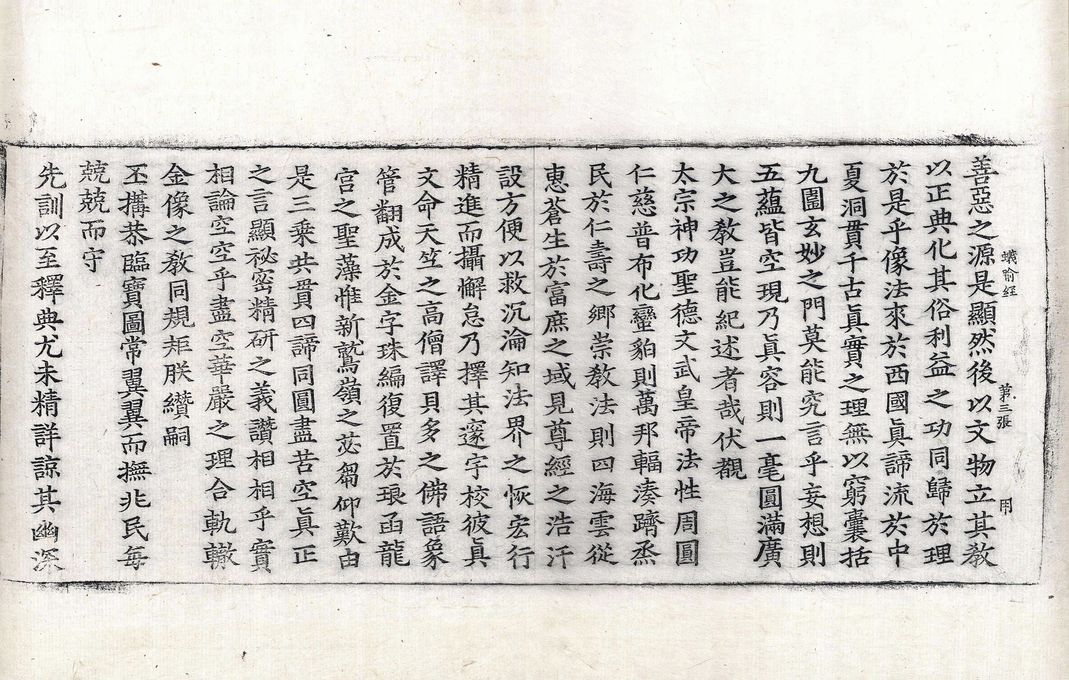 蟻喻經 第三張 甲
善惡之源是顯然後以文物立其教
以正典化其俗利益之功同歸於理
於是乎像法來於西國眞諦流於中
夏洞貫千古眞實之理無以窮囊括
九圍玄妙之門莫能究言乎妄想則
五蘊皆空現乃眞容則一毫圓滿廣
大之教豈能紀述者哉伏覩
太宗神功聖德文武皇帝法性周圓
仁慈普布化蠻貊則萬邦輻湊躋烝
民於仁壽之鄉崇教法則四海雲從
惠蒼生於富庶之域見尊經之浩汗
設方便以救沉淪知法界之恢宏行
精進而攝懈怠乃擇其邃宇校彼眞
文命天竺之高僧譯貝多之佛語象
管翻成於金字珠編復置於琅函龍
宮之聖藻惟新鷲嶺之苾芻仰歎由
是三乘共貫四諦同圓盡苦空眞正
之言顯祕密精研之義讚相相乎實
相論空空乎盡空華嚴之理合軌轍
金像之教同規矩朕纘嗣
丕搆恭臨寶圖常翼翼而撫兆民每
兢兢而守
先訓以至釋典尤未精詳諒其幽深